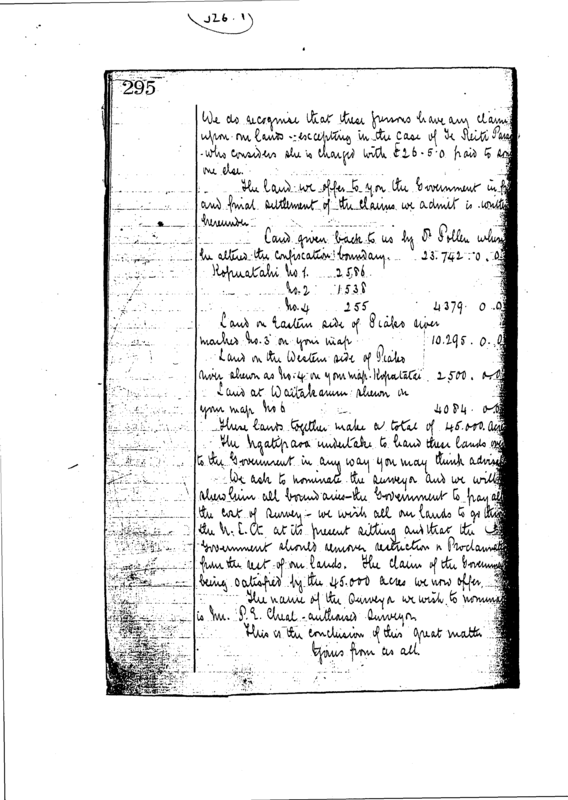 J26.1
295
We do recognise that these persons have any claim
upon our lands - excepting in the case of Te Reiti
- who considers she is charged with £26-5-0 paid to
one else.
The land we offer to you the Government in
and final settlement of the claims we admit is
hereunder.
Land given back to us by Dr Pollen when
he altered the confiscation boundary. 23.742 . 0 . 0
Kopuatahi No 1. 2586
No. 2 1538
No. 4 255 4379 0 0
Land on Eastern side of Piako river
marked No. 3 on your map 10.295. 0. 0
Land on the Western side of Piako
river shewn as No. 4 on your map 2.500. 0-0
Land at Waitakaruru shewn on
your map No 6 4084 0-0
These lands together make a total of 45.000
The Ngatipaoa undertake to hand these lands
to the Government in any way you may think
We ask to nominate the surveyor and we will
shew him all boundaries - the Government to pay
the cost of survey - we wish all our lands to go
the N. L. Ct. at its present sitting and that the
Government should remove restriction or
from the rest of our lands. The claim of the
being satisfied by the 45.000 acres we now offer.
The name of the surveyor we wish to
is Mr. P. E. Cheal - authorised surveyor
This is the conclusion of this great matter
from us all.